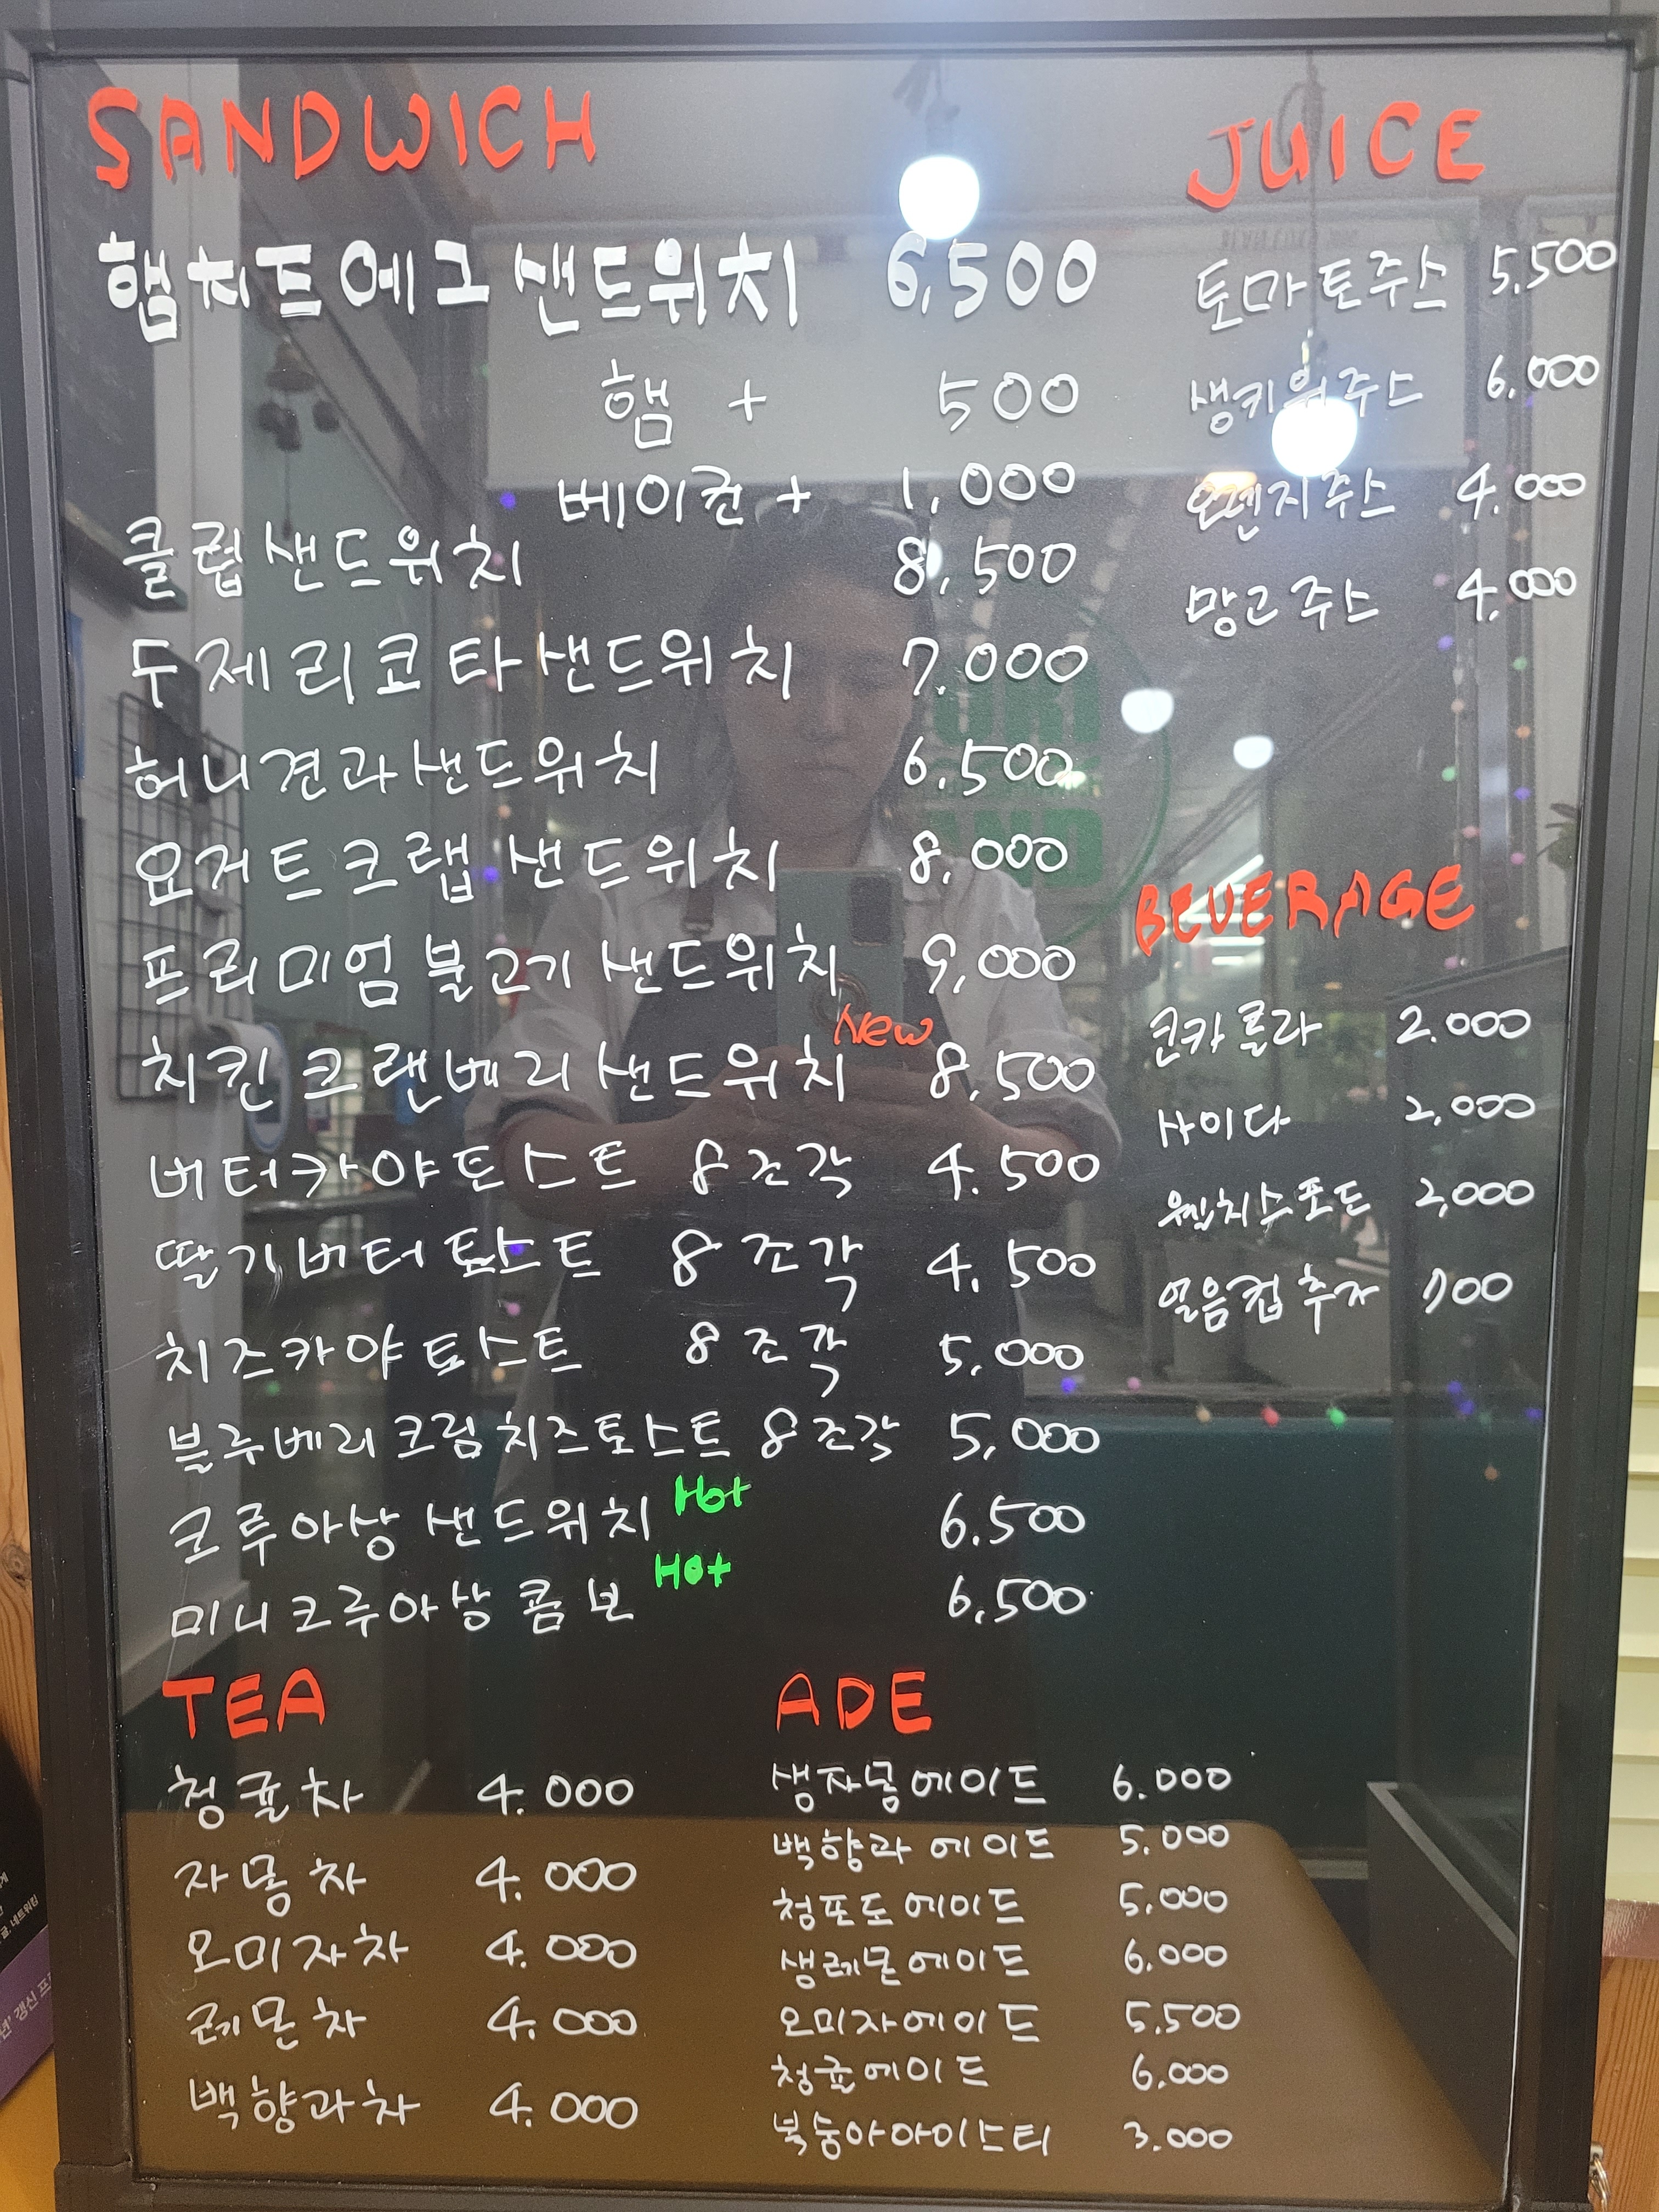 SANDWICH
햄치즈에그샌드위치 6,500
햄 + 500
베이컨 + 1,000
클럽샌드위치 8,500
두제리코타샌드위치 7.000
허니견과샌드위치 6.500
요거트크랩 샌드위치 8,000
프리미엄 불고기 샌드위치 9,000
New
치킨 크랜베리 샌드위치 8,500
버터카야토스트 8조각 4.500
딸기버터토스트 8조각 4.500
치즈카야토스트 8조각 5,000
블루베리크림치즈토스트 8조각 5,000
크루아상 샌드위치 Hot 6.500
미니크루아상 콤보 Hot 6,500
JUICE
토마토주스 5,500
생키위주스 6.000
오렌지주스 4.000
망고주스 4.000
BEVERAGE
코카콜라 2.000
사이다 2,000
웰치스포도 2,000
얼음컵추가 700
TEA
청귤차 4.000
자몽차 4.000
오미자차 4.000
레몬차 4.000
백향과차 4.000
ADE
생자몽에이드 6.000
백향과 에이드 5.000
청포도에이드 5,000
생레몬에이드 6,000
오미자에이드 5,500
청귤에이드 6,000
복숭아아이스티 3.000